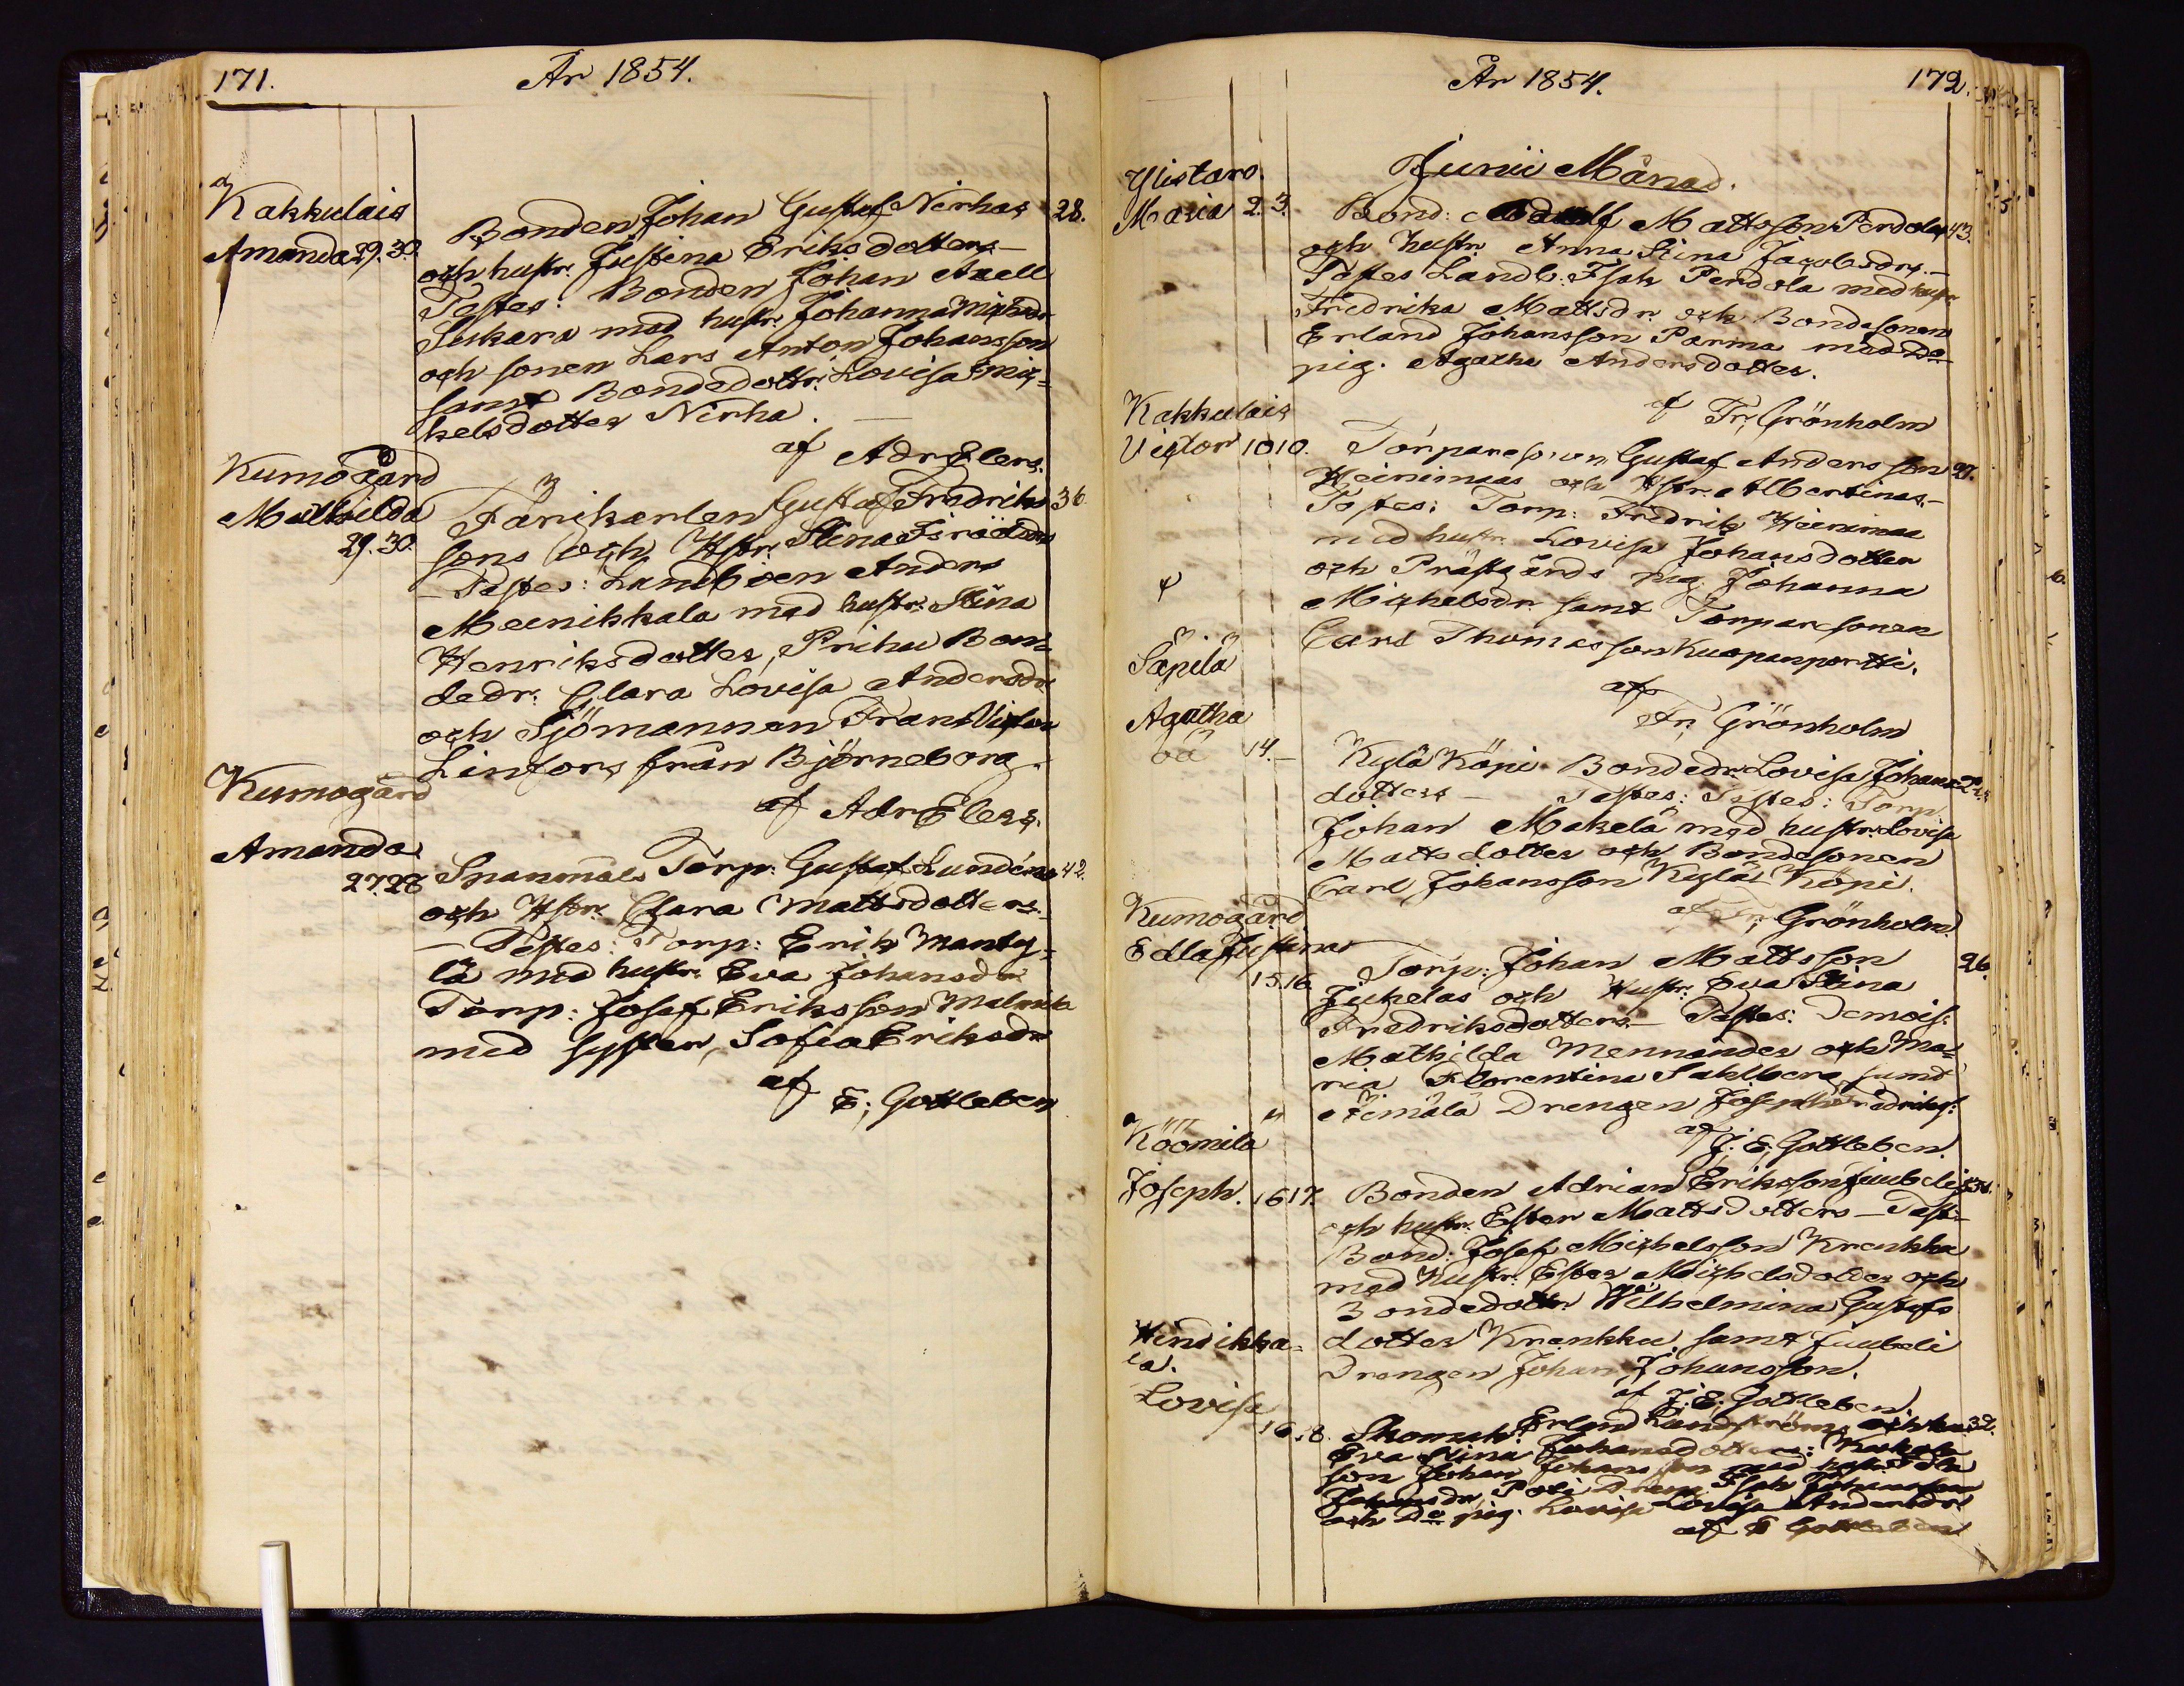 171.
År 1854.
Kakkulais
Amanda 29. 30.
Bonden Johan Gustaf Nirhas 28.
och hustr. Justina Eriksdotters
Testes: Bonden Johan Axell
Sukara med hustr. Johanna Michelsdr
och sonen Lars Anton Johansson
samt Bondedottr. Lovisa Mic-
kelsdotter Nirha.
af Adr. Elers.
Kumogård
Mathilda
29. 30.
Färikarlen Gustaf Fredriks 36
sons och Hstr. Stina
Testes: Landboen Anders
Meenikkala med hustr. Stina
Henriksdotter, Prihu Bon-
dedr. Clara Lovisa Andersdr
och Sjömannen Frans Victor
Linfors från Björneborg.
af Adr Elers.
Kumogård
Amanda
27. 28
Torp: Gustaf Lundéns 42.
och Hstr. Clara Mattsdotters.
Testes: Torp: Erik Mänty-
lä med hustr. Eva Johansdr
Torp: Josef Eriksson
med syster, Sofia Eriksdr
af E. Gottleben
År 1854.
172.
Junii Månad.
Ylistaro.
Maria 2. 3.
Bond: Adolf Mattsson Perdolas 43.
och hustr. Anna Stina Jacobsdrs.
Testes Landb. Isak Perdola med hustr
Fredrika Mattsdr. och Bondesonen
Erland Johansson Parma med Do
pig. Agatha Andersdotter.
af Fr. Grönholm
Kakkulais
Victor 10 10.
Torparesonen Gustaf Andersson 27.
Heinimaas och Hstr. Albertinas.
Testes: Torp: Fredrik Heinimaa
med hustr. Lovisa Johansdotter
och Prästgårds pig. Johanna
Michelsdr. samt Torparesonen
Carl Thomasson Kuopanportti.
af
Fr. Grönholm
Säpilä
Agatha
oä 14. –
Kylä Köpi Bondedr. Lovisa Johans 24.
dotters Testes: Testes: Torp.
Johan Makelä med hustr. Lovisa
Mattsdotter och Bondesonen
Carl Johansson Kylä Köpi.
af Fr. Grönholm.
Kumogård
Edla Justina
15. 16.
Torp: Johan Mattsson 26.
Jukelas och Hustr. Eva Stina
Fredriksdotters. Testes: Demois:
Mathilda Mennander och Ma-
ria Florentina Sahlberg samt
Äimälä Drengen Joseph Fredriks:
af J. E. Gottleben.
Köömilä
Joseph. 16 17.
Bonden Adrian Eriksson Juubelis
och hustr. Ester Mattsdotters – Test:
Bond: Josef Michelsson Krankka
med Hustr. Ester Michelsdotter och
Bondedottr. Wilhelmina Gustafs
dotter Krankku, samt Juubeli
Drengen Johan Johansson.
af J. E. Gottleben
Hindikka-
la.
Lovisa
16. 18.
Skomak: Erland Lundströms 32.
Eva Stina Johansdotters:
son Johan Johansson med hustr.
Johansdr. Poti Dreng Isak Johansson
och Do pig. Lovisa Lovisa Andersdr.
af E Gottleben